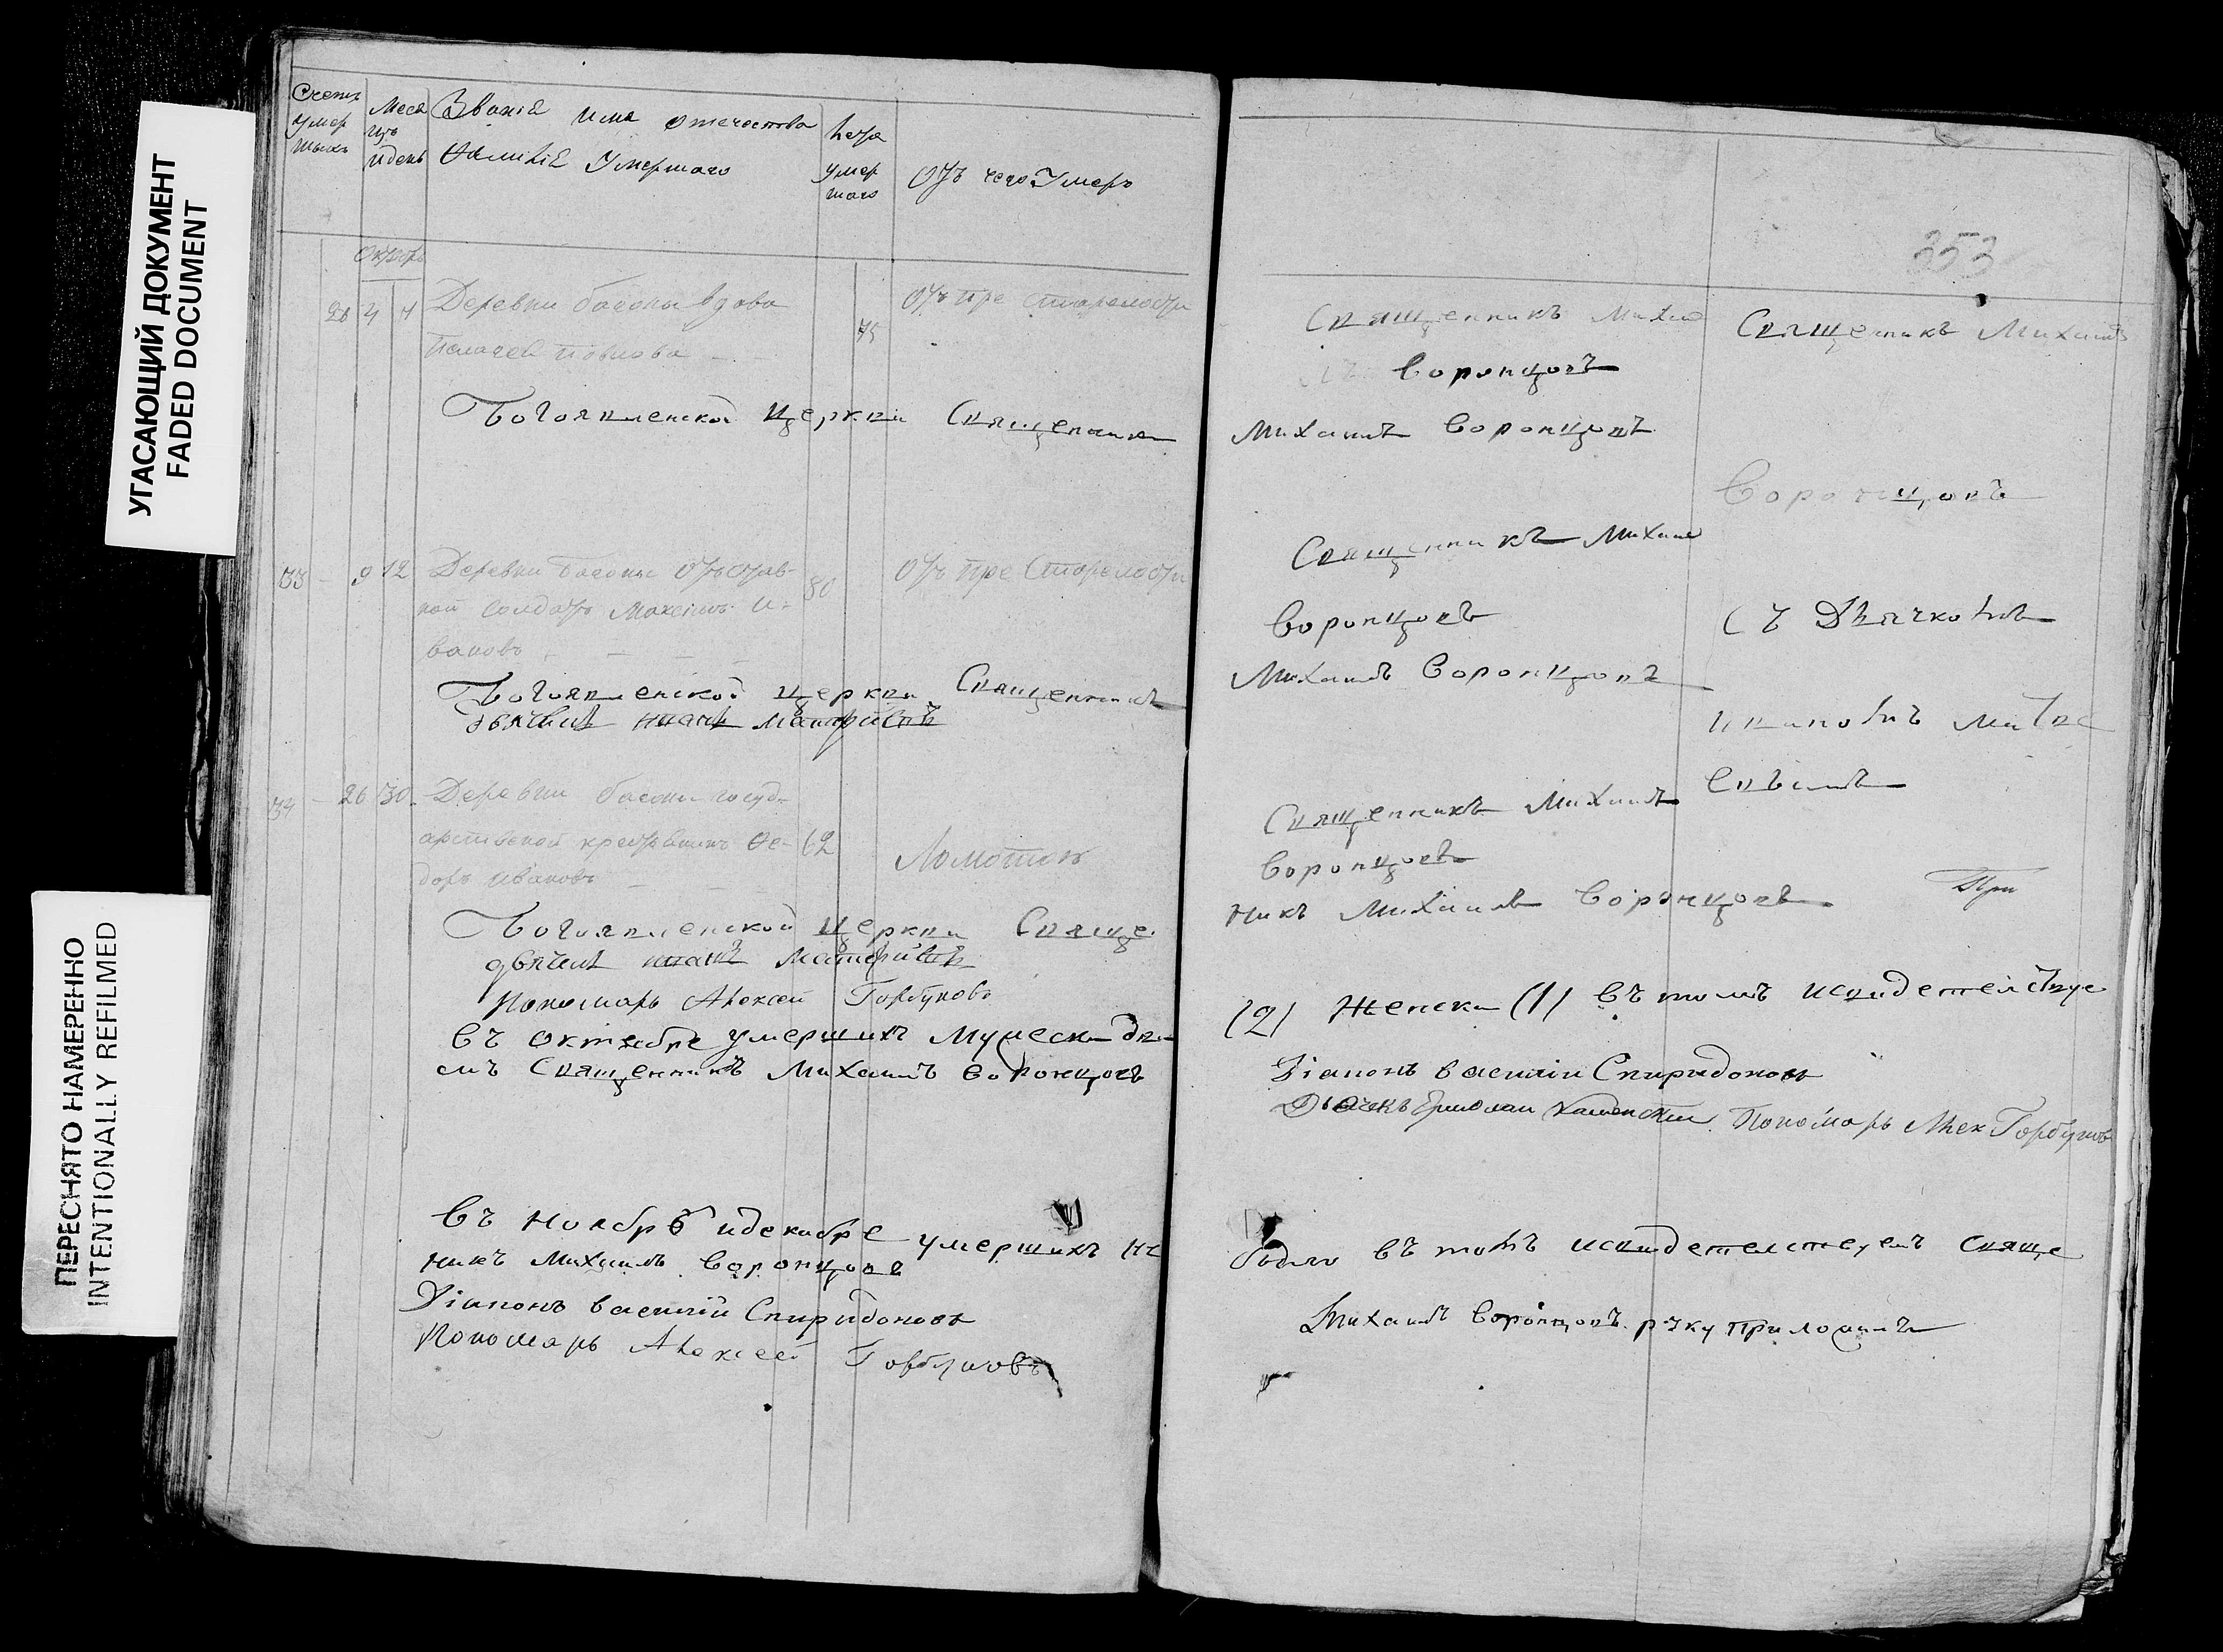 УГАСАЮЩИЙ ДОКУМЕНТ
FADED DOCUMENT
ПЕРЕСНЯТО НАМЕРЕННО
INTENTIONALLY REFILMED
Счетъ умер шыхъ
Меся цъ и день
Званiе имя отечества
Фамилiе умершаго
Лета умер шаго
Отъ чего умеръ
Октябрь
28 4 Деревни басоны вдова
75
Отъ пре старелости
Павлова
Богоявленской церкви Священник
33 9 12 Деревни басоны Отъстав
ной солдатъ Максимъ И
вановъ
80
Отъ пре Старелости
Богоявленской церкви Священникъ
34 26 30 Деревни басоны госуд
арственой крестьянинъ Фе
доръ Ивановъ
62
Ломотою
Богоявленской церкви Свяще
Пономарь Алексей Горбуновъ
въ октябре умершихъ Мужеска два
Священникъ Михаилъ Воронцовъ
въ Ноябрѣ и декабре умершихъ не
никъ Михаилъ Воронцовъ
Дiаконъ василiй Спиридоновъ
Пономарь Алексей Горбуновъ
353
Священникъ Михаи
лъ Воронцовъ
Михаилъ Воронцовъ
Священникъ Михаилъ
Воронцовъ
Священникъ Михаил
Воронцовъ
Михаилъ Воронцовъ
Съ
Священникъ Михаилъ
Воронцовъ
никъ Михаилъ Воронцовъ
При
(2) Женска (1) въ томъ исвидетелствуе
Дiаконъ василiй Спиридоновъ
Пономарь Алек Горбуновъ
было въ томъ исвидетелствуемъ свяще
Михаилъ Воронцовъ руку приложилъ